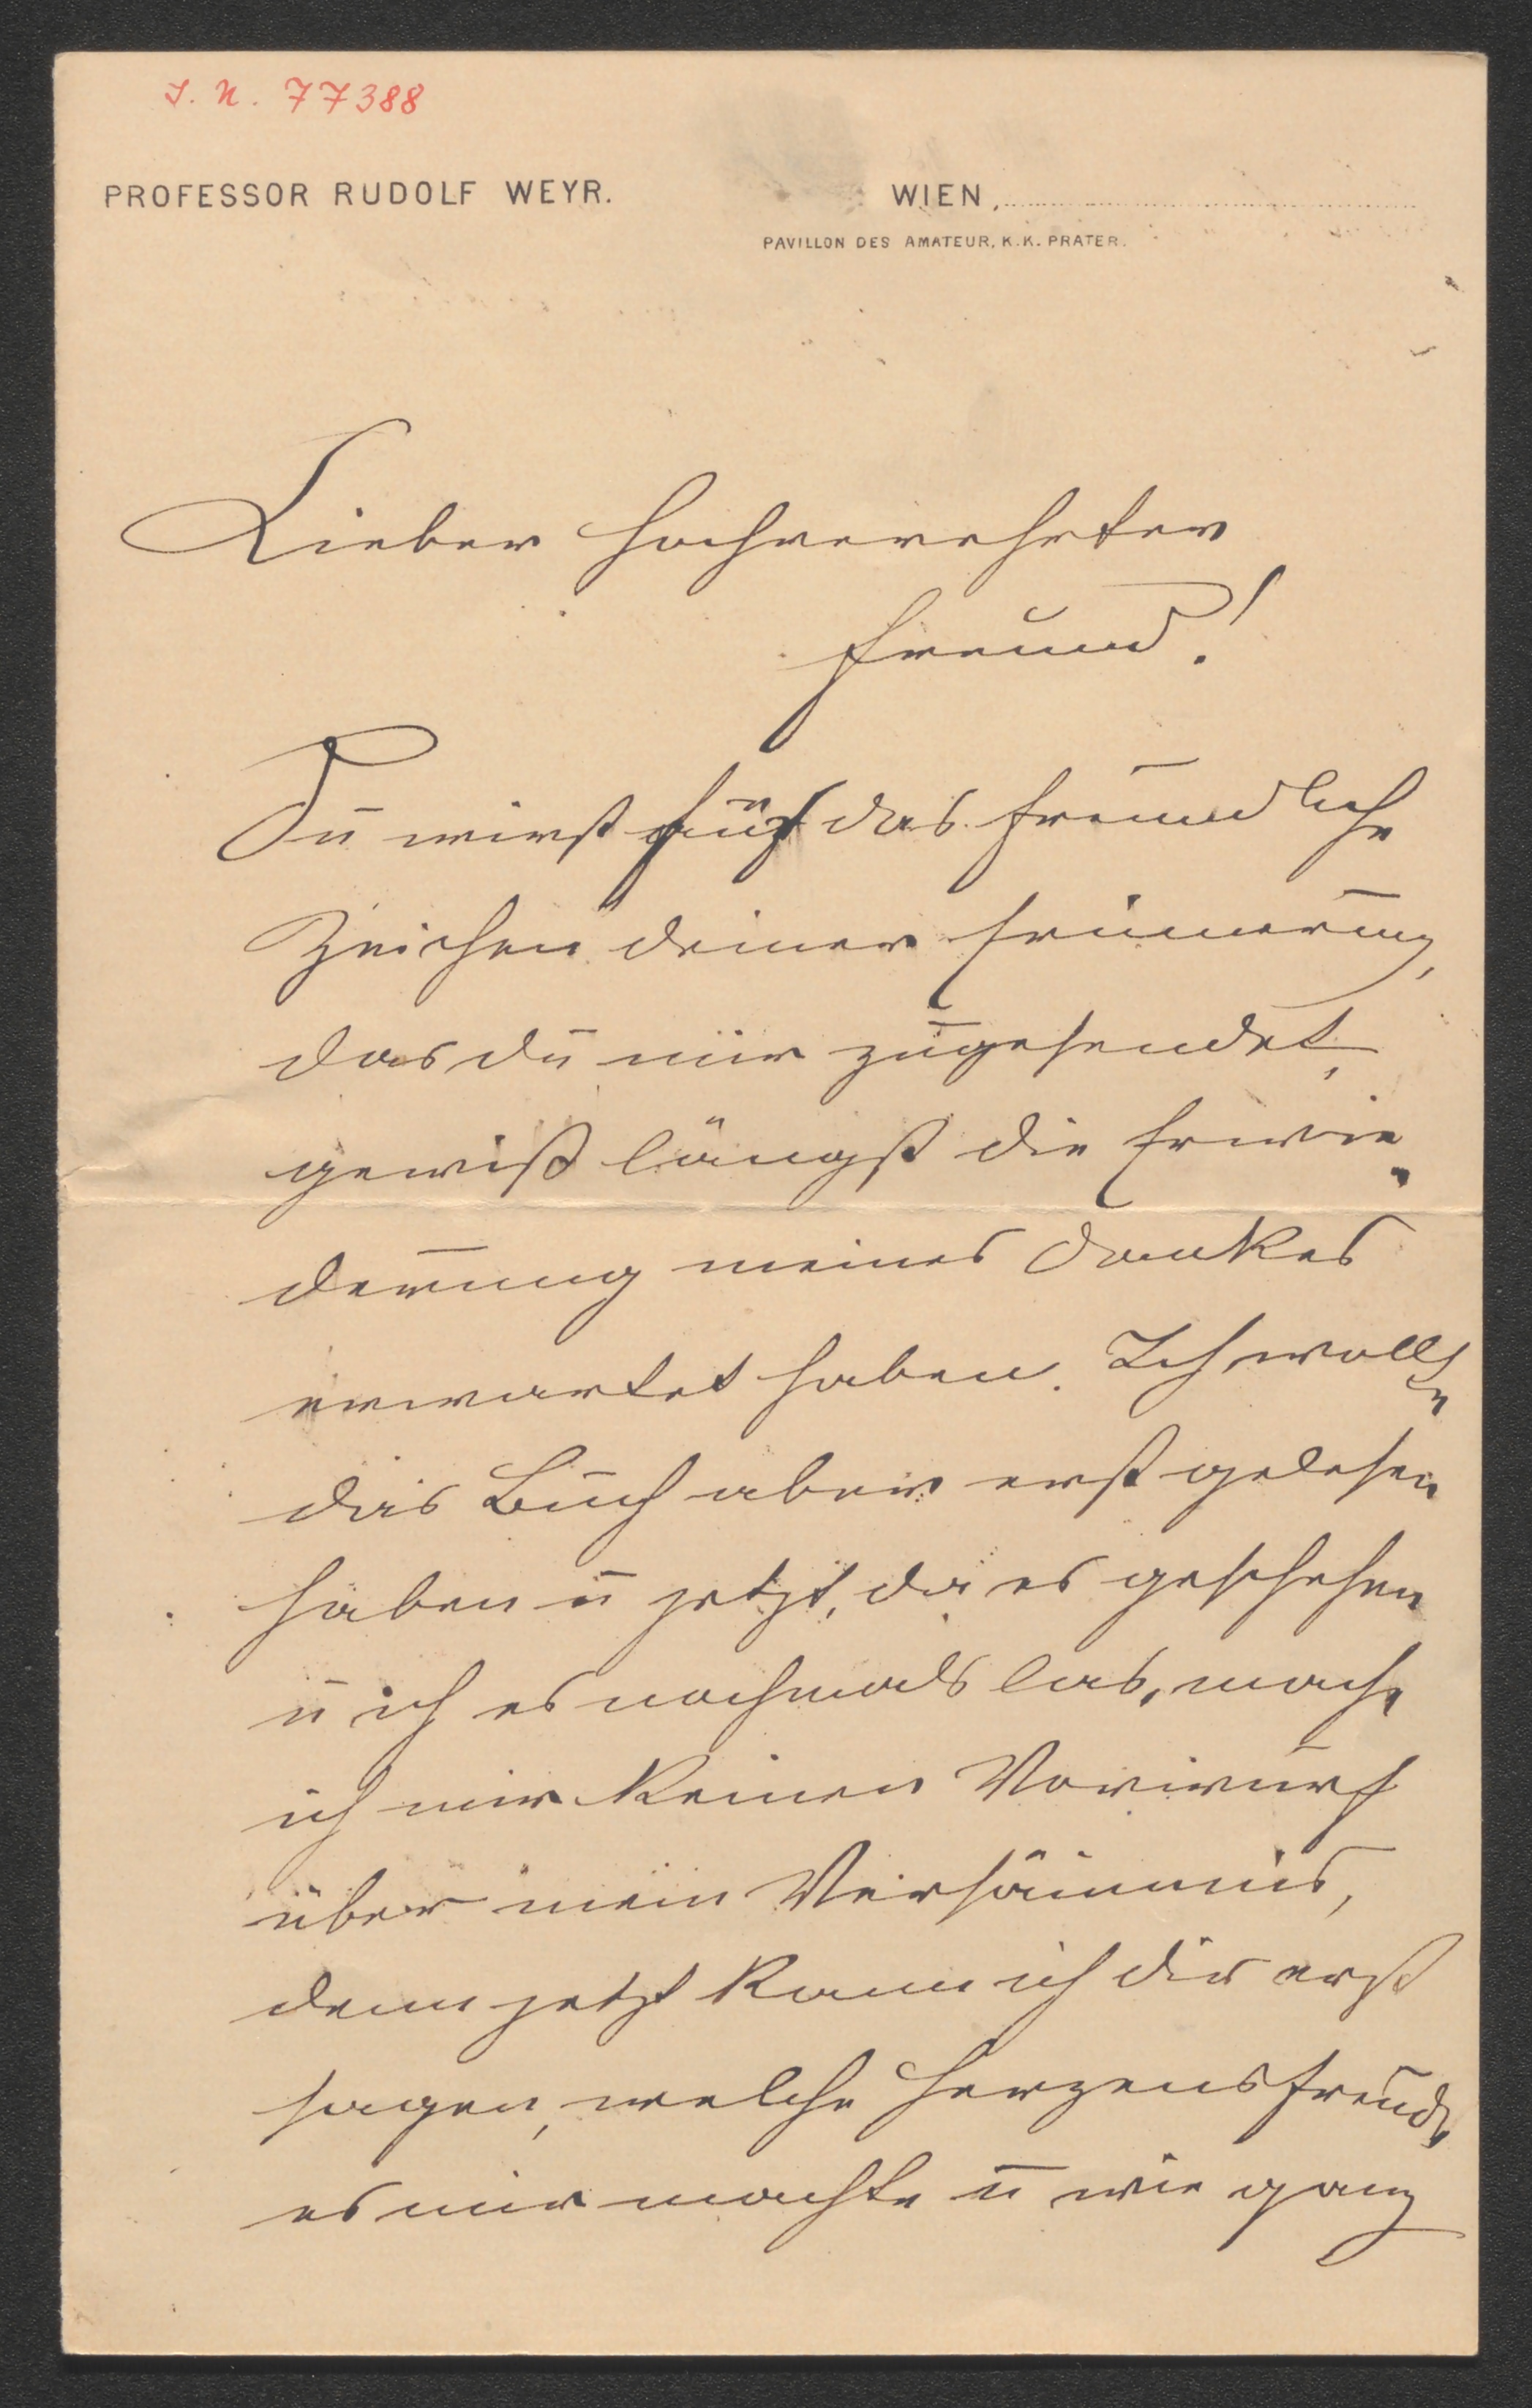 I. N. 77388
PROFESSOR RUDOLF WEYR.
WIEN,
PAVILLON DES AMATEUR, K.K. PRATER.
Lieber hochverehrter
Freund!
Du wirst für das freundliche
Zeichen deiner Erinnerung,
das du mir zugesendet,
gewiß längst die Erwie-
derung meines Dankes
erwartet haben. Ich wollte
das Buch aber erst gelesen
haben u jetzt, da es geschehen
u ich es nochmals las, mache
ich mir keinen Vorwurf
über mein Versäumnis,
denn jetzt kann ich dir erst
sagen, welche Herzensfreude
es mir machte u wie ganz